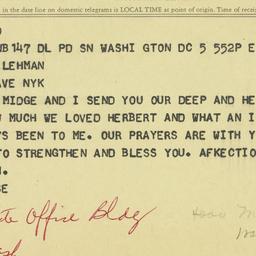 in the date line on domestic telegrams is LOCAL TIME at point of origin. Time of recei
WB147 DL PD SN WASHI GTON DC 5 552P E
LEHMAN
AVE NYK
MIDGE AND I SEND YOU OUR DEEP AND HE
W MUCH WE LOVED HERBERT AND WHAT AN I
YS BEEN TO ME. OUR PRAYERS ARE WITH Y
TO STRENGTHEN AND BLESS YOU. AFKECTIO
SE
te Office Bldg